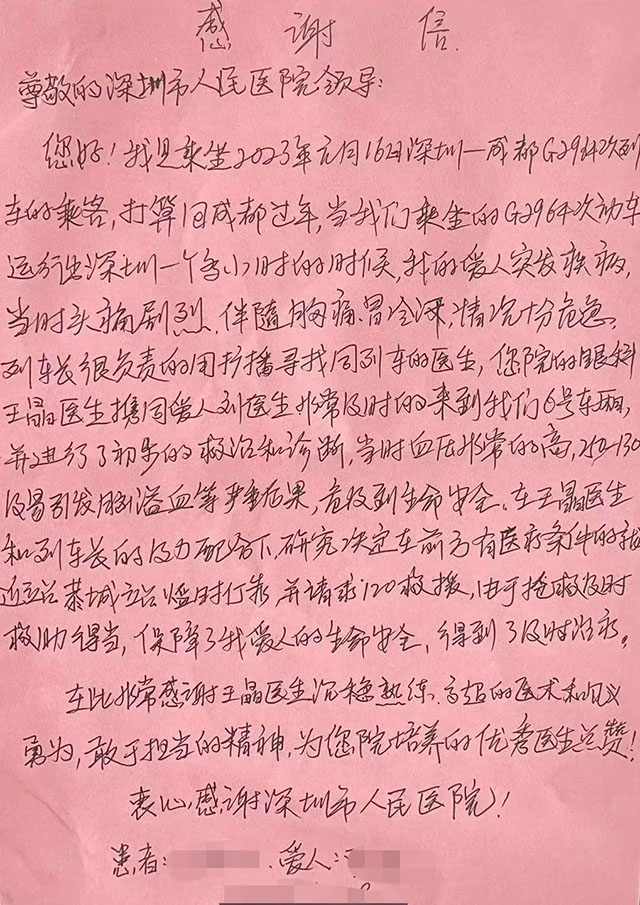 感谢信
尊敬的深圳市人民医院领导:
您好！我是乘坐2023年元月16日深圳—成都G2964次列
车的乘客，打算回成都过年，当我们乘坐的G2964次动车
运行出深圳一个多小时的时候，我的爱人突发疾病，
当时头痛剧烈、伴随胸痛冒冷汗，情况十分危急。
列车长很负责的用扩播寻找同列车的医生，您院的眼科
王晶医生携同爱人刘医生非常及时的来到我们6号车厢，
并进行了初步的救治和诊断，当时血压非常的高，210-130
及易引发脑溢血等严重后果，危及到生命安全。在王晶医生
和列车长的及力配合下，研究决定在前方有医疗条件的就
近站恭城站临时停靠，并请求120救援，由于抢救及时
救助得当，保障了我爱人的生命安全，得到了及时治疗。
在此非常感谢王晶医生沉稳熟练、高超的医术和见义
勇为，敢于担当的精神，为您院培养的优秀医生点赞！
衷心感谢深圳市人民医院！
患者: 爱人: